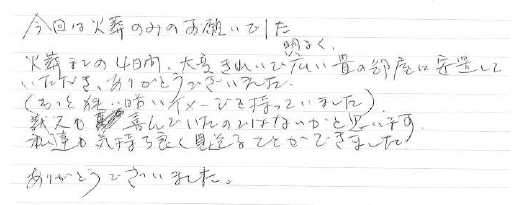 今回は火葬のみのお願いでした
火葬までの4日間、大変きれいで明るく、広い畳の部屋に安置して
いただき、ありがとうございました。
(もっと狭い暗いイメージを持っていました)
義父も喜んでいたのではないかと思います。
私達も気持ち良く見送ることができました。
ありがとうございました。